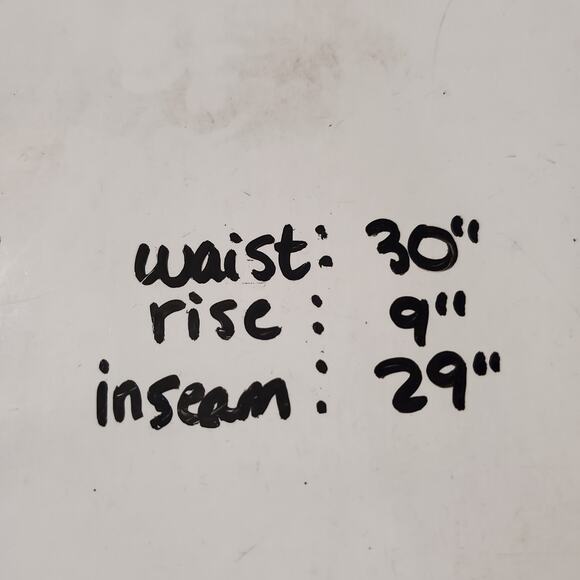 waist: 30"
rise: 9"
inseam: 29"